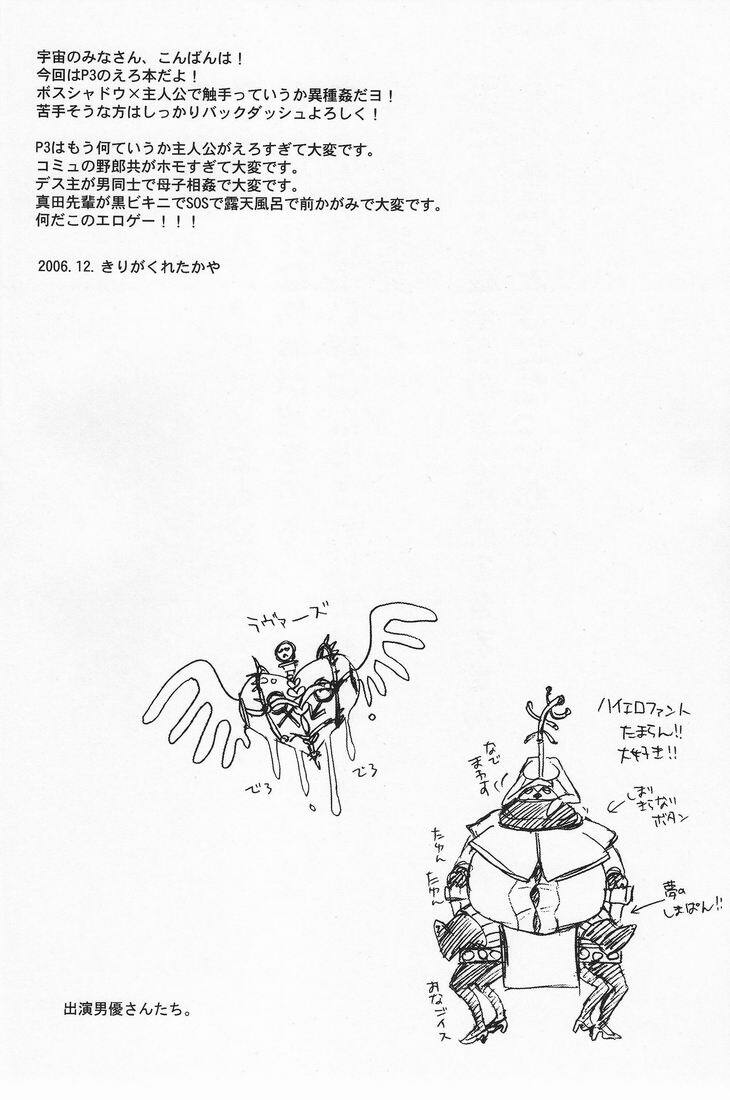 宇宙のみなさん、こんばんは！
今回はP3のえろ本だよ！
ボスシャドウ×主人公で触手っていうか異種姦だヨ！
苦手そうな方はしっかりバックダッシュよろしく！
P3はもう何ていうか主人公がえろすぎて大変です。
コミュの野郎共がホモすぎて大変です。
デス主が男同士で母子相姦で大変です。
真田先輩が黒ビキニでSOSで露天風呂で前かがみで大変です。
何だこのエロゲー！！！
2006.12. きりがくれたかや
ラヴァーズ
でろ
でろ
ハイエロファント
たまらん!!
大好き!!
なで
まわす
しまり
きらない
ボタン
たゆん
たゆん
夢の
しまぱん!!
おなごイス
出演男優さんたち。